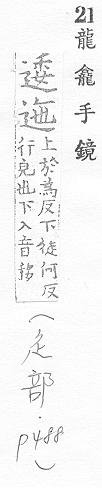 21 龍龕手鏡
逶迤上於為反下徒何反
行皃也下又音移
(辵部·p488)